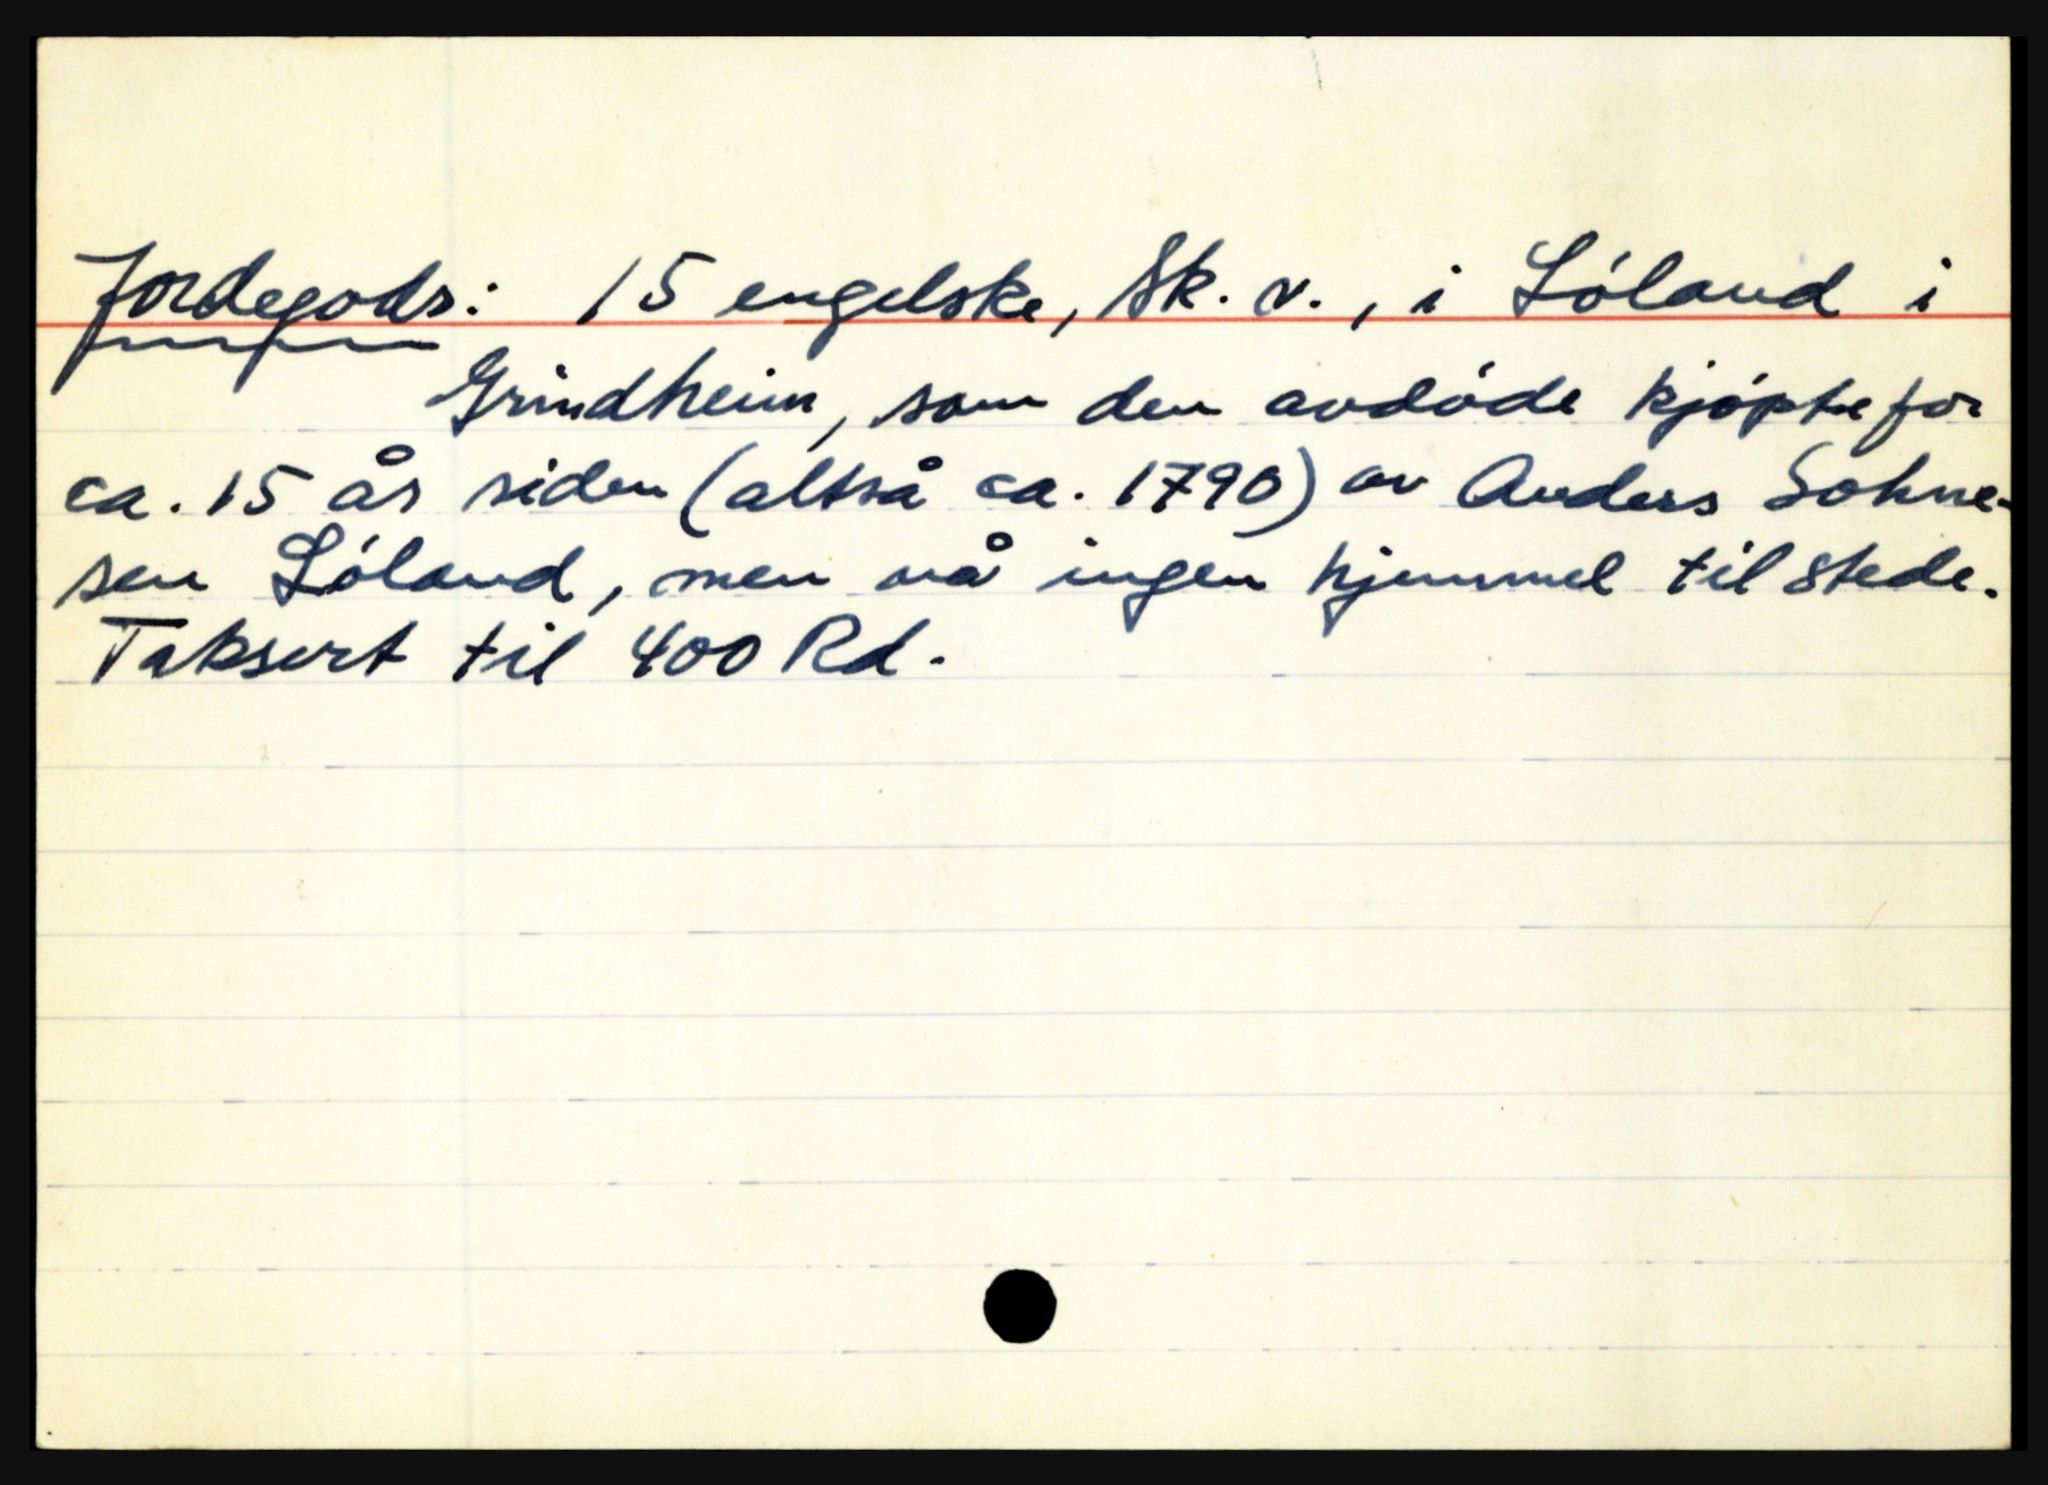 Jordegods: 15 engelske, Sk. v., i Lóland i
Grindheim, som den avdóde kjópte for
ca. 15 år siden (altså ca. 1790) av Anders Sohne-
sen Lóland, men nå ingen hjemmel til stede.
Taksert til 400 Rd.